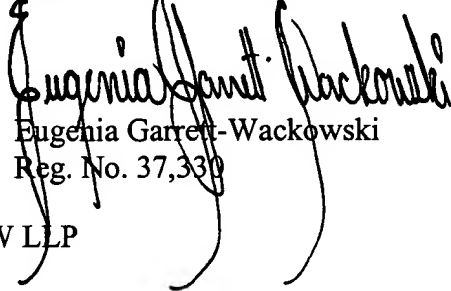 Eugenia Garrett-Wackowski
Eugenia Garrett-Wackowski
Reg. No. 37,330
W LLP